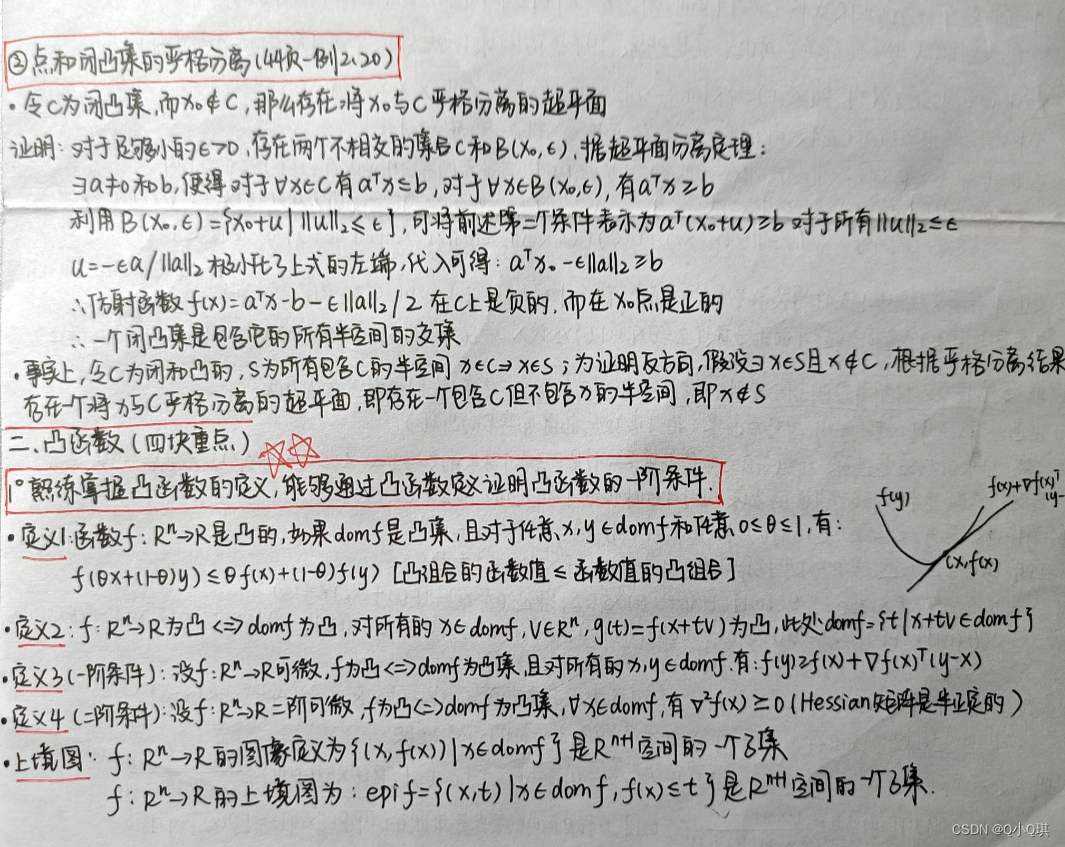 ②点和闭凸集的严格分离(44页-例2.20)
·令C为闭凸集,而x₀∉C,那么存在将x₀与C严格分离的超平面
证明:对于足够小的ϵ>0,存在两个不相交的集合C和B(x₀,ϵ),据超平面分离定理:
∃a≠0和b,使得对于∀x∈C有aᵀx≤b,对于∀x∈B(x₀,ϵ),有aᵀx≥b
利用B(x₀,ϵ)={x₀+u| ||u||₂≤ϵ},可将前述第二个条件表示为aᵀ(x₀+u)≥b对于所有||u||₂≤ϵ
u=-ϵa/||a||₂极小化了上式的左端,代入可得:aᵀx₀-ϵ||a||₂≥b
∴仿射函数f(x)=aᵀx-b-ϵ||a||₂/2在C上是负的,而在x₀点是正的
∴一个闭凸集是包含它的所有半空间的交集
·事实上,令C为闭和凸的,S为所有包含C的半空间x∈C⇒x∈S;为证明反方向,假设∃x∈S且x∉C,根据严格分离结果
存在一个将x与C严格分离的超平面,即存在一个包含C但不包含x的半空间,即x∉S
二、凸函数(四块重点)
1°熟练掌握凸函数的定义,能够通过凸函数定义证明凸函数的一阶条件.
·定义1:函数f:Rⁿ→R是凸的,如果domf是凸集,且对于任意x,y∈domf和任意0≤θ≤1,有:
f(θx+(1-θ)y)≤θf(x)+(1-θ)f(y) [凸组合的函数值≤函数值的凸组合]
f(y)
f(x)+∇f(x)ᵀ
(y-
(x,f(x)
·定义2:f:Rⁿ→R为凸⇔domf为凸,对所有的x∈domf,v∈Rⁿ,g(t)=f(x+tv)为凸,此处domf={t|x+tv∈domf}
·定义3(一阶条件):设f:Rⁿ→R可微,f为凸⇔domf为凸集,且对所有的x,y∈domf.有:f(y)≥f(x)+∇f(x)ᵀ(y-x)
·定义4(二阶条件):设f:Rⁿ→R二阶可微,f为凸⇔domf为凸集,∀x∈domf,有∇²f(x)≥0(Hessian矩阵是半正定的)
·上境图:f:Rⁿ→R的图像定义为{(x,f(x))|x∈domf}是Rⁿ⁺¹空间的一个子集
f:Rⁿ→R的上境图为:epif={(x,t)|x∈domf,f(x)≤t}是Rⁿ⁺¹空间的一个子集.
CSDN @Q小Q琪